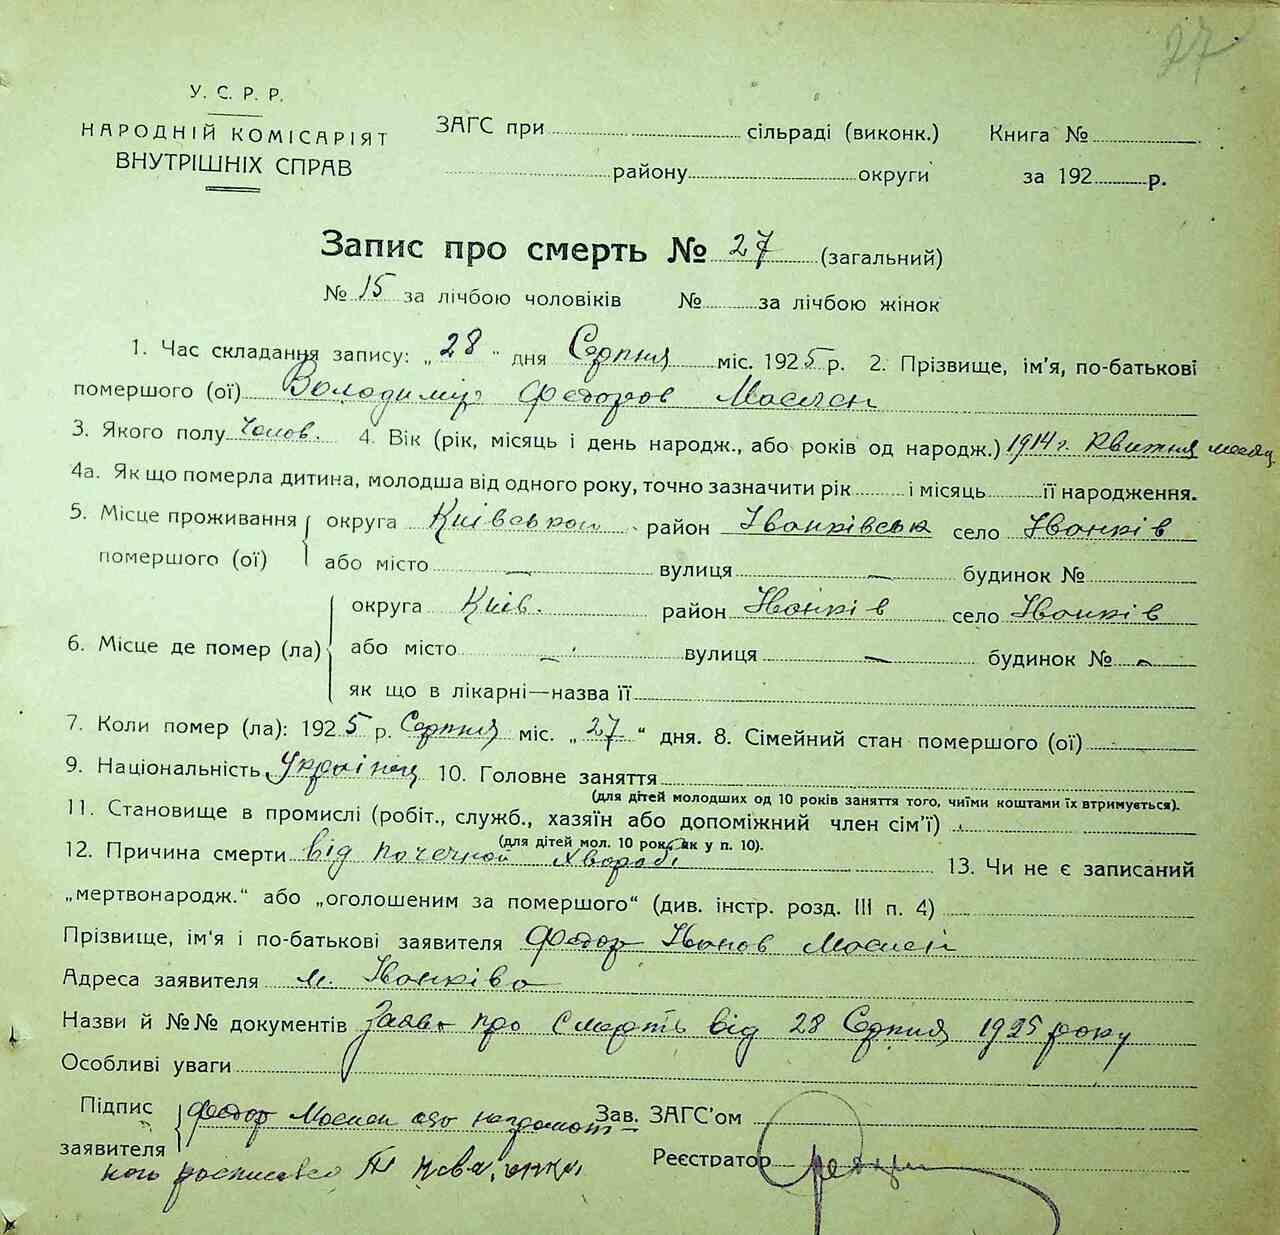 27
У. С. Р. Р.
НАРОДНІЙ КОМІСАРІЯТ
ВНУТРІШНІХ СПРАВ
ЗАГС при сільраді (виконк.) Книга №
району округи за 192 р.
Запис про смерть № 27 (загальний)
№ 15 за лічбою чоловіків № за лічбою жінок
1. Час складання запису: „28" дня Серпня міс. 1925 р. 2. Прізвище, ім'я, по-батькові
помершого (ої) Володимир Федоров
3. Якого полу Чолов. 4. Вік (рік, місяць і день народж., або років од народж.) 1914 г. Квитня
4а. Як що померла дитина, молодша від одного року, точно зазначити рік і місяць її народження.
5. Місце проживання помершого (ої) округа Київської район Іванківськ село Іванків
або місто — вулиця — будинок №
6. Місце де помер (ла) округа Київ. район Іванків село Іванків
або місто — вулиця — будинок № —
як що в лікарні—назва її
7. Коли помер (ла): 1925 р. Серпня міс. „27" дня. 8. Сімейний стан помершого (ої)
9. Національність Українец 10. Головне заняття
(для дітей молодших од 10 років заняття того, чиїми коштами їх втримується).
11. Становище в промислі (робіт., служб., хазяїн або допоміжний член сім'ї)
(для дітей мол. 10 рок. як у п. 10).
12. Причина смерти від почечной хвороби 13. Чи не є записаний
„мертвонародж." або „оголошеним за помершого" (див. інстр. розд. III п. 4)
Прізвище, ім'я і по-батькові заявителя Федор Іванов
Адреса заявителя м. Іванків
Назви й №№ документів Заява про смерть від 28 Серпня 1925 року
Особливі уваги
Підпис заявителя Федор
Зав. ЗАГС'ом
Реєстратор